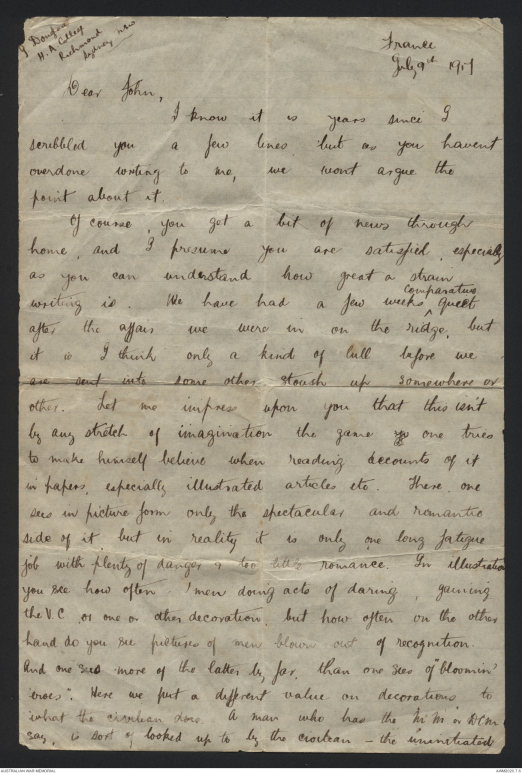 J Douglas
H. A College
Richmond
Sydney NSW
France
July 9th 1917
Dear John,
I know it is years since I
scribbled you a few lines but as you havent
overdone writing to me, we wont argue the
point about it.
Of course, you get a bit of news through
home, and I presume you are satisfied, especially
as you can understand how great a strain
writing is. We have had a few weeks comparative quiet
after the affair we were in on the ridge, but
it is I think only a kind of lull before we
are sent into some other stoush up somewhere or
other. Let me impress upon you that this isn't
by any stretch of imagination the game one tries
to make himself believe when reading accounts of it
in papers, especially illustrated articles etc. There one
sees in picture form only the spectacular and romantic
side of it but in reality it is only one long fatigue
job with plenty of danger & too little romance. In illustration
you see how often men doing acts of daring, gaining
the V.C. or one or other decoration, but how often on the other
hand do you see pictures of men blown out of recognition.
And one sees more of the latter by far, than one sees of "bloomin'
'eroes". Here we put a different value on decorations to
what the civilian does. A man who has the M.M. or D.C.M.
say, is sort of looked up to by the civilian - the uninitiated
AUSTRALIAN WAR MEMORIAL